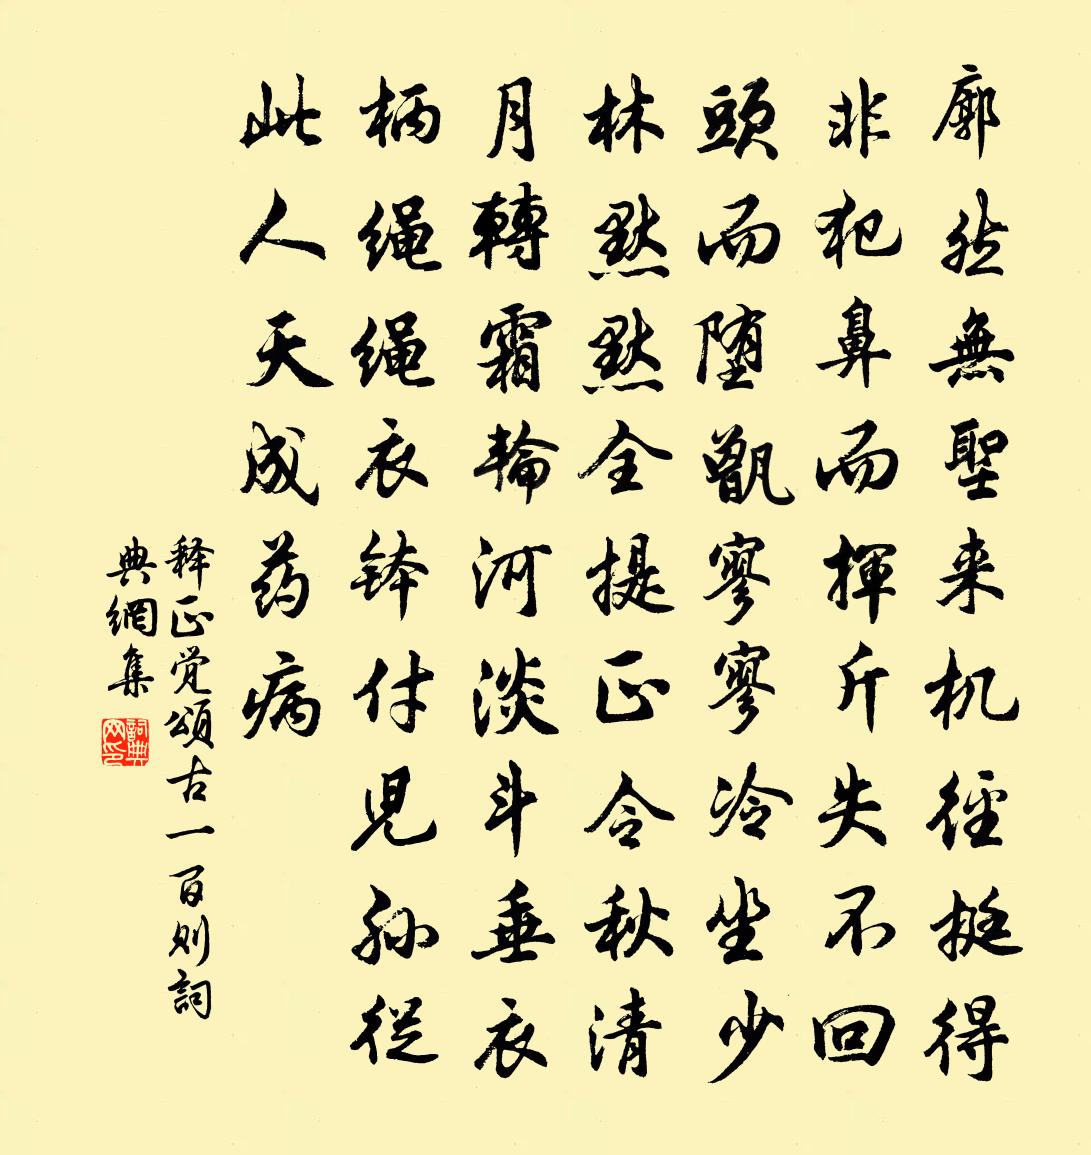 廓然無聖来机径挺得
非犯鼻而揮斤失不回
頭而堕甑寥寥冷坐少
林默默全提正令秋清
月轉霜輪河淡斗垂衣
柄绳绳衣钵付児孙從
此人天成药病
释正觉頌古一百则詞
典網集
詞典网印